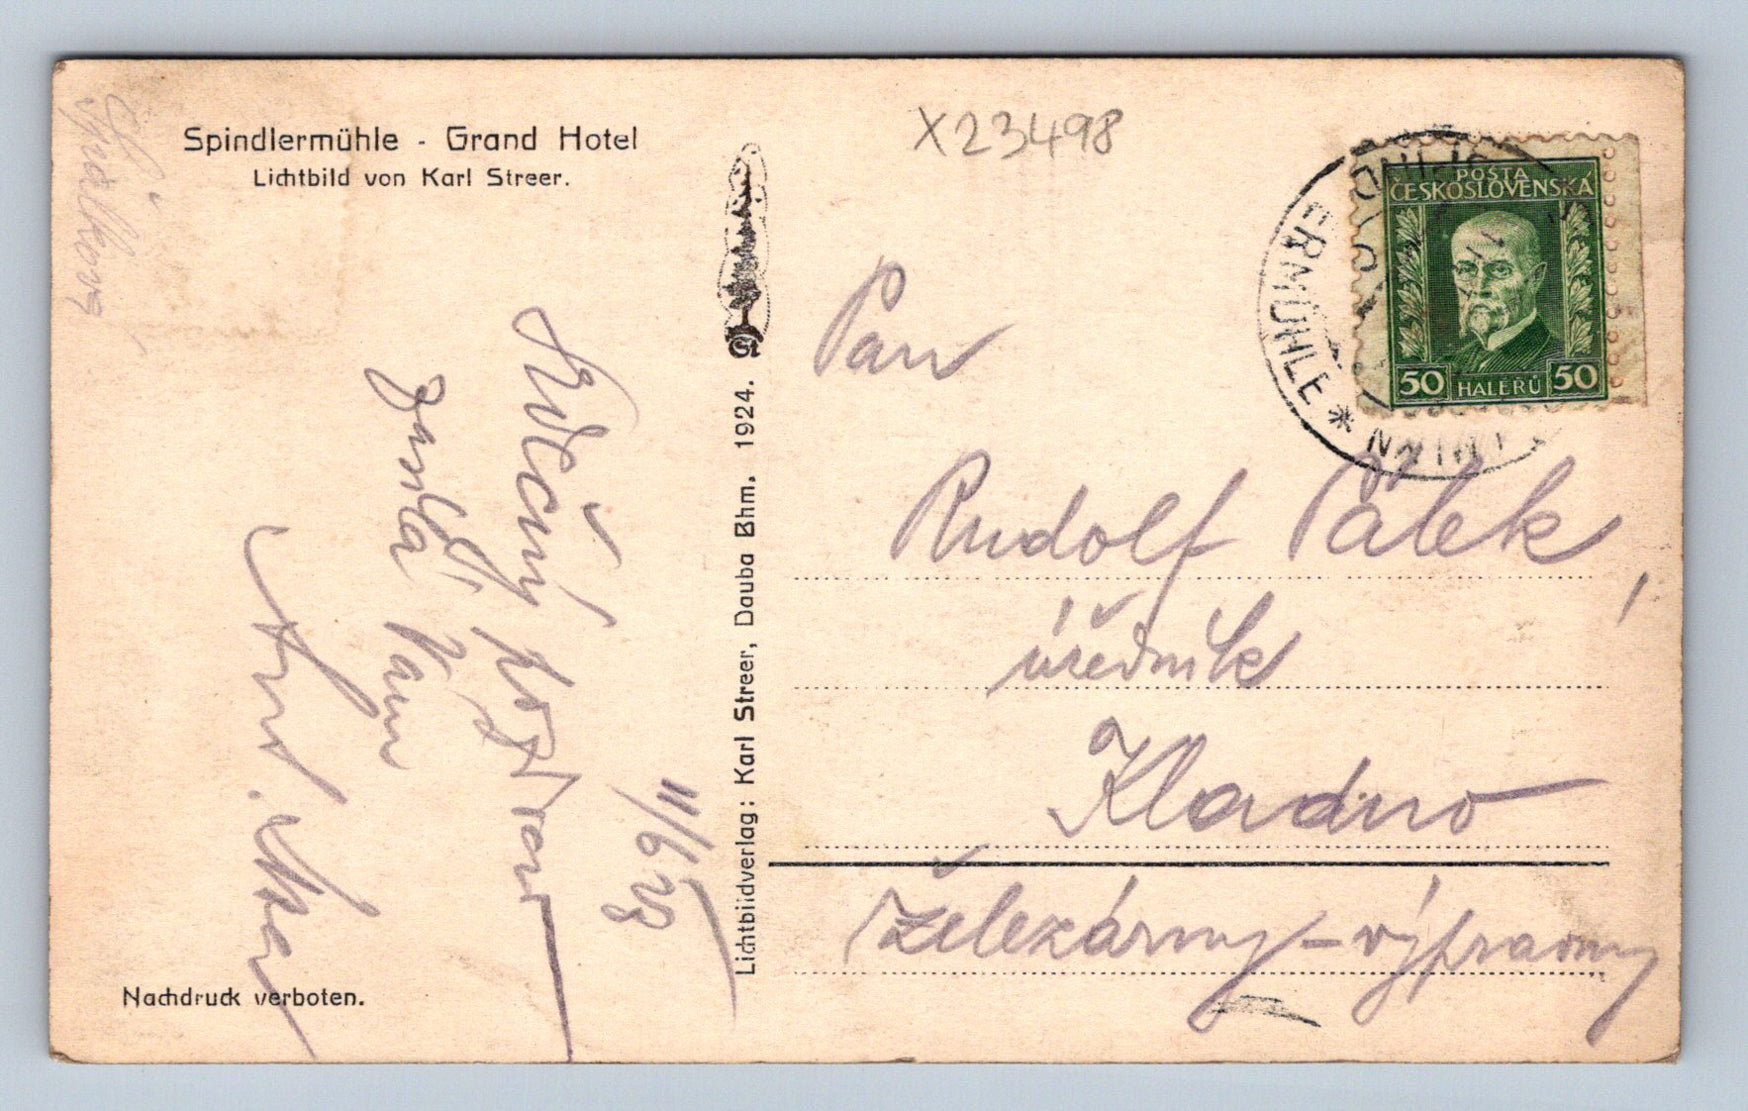 Spindlermühle - Grand Hotel
Lichtbild von Karl Streer.
X23498
POŠTA
ČESKOSLOVENSKÁ
50 HALÉŘŮ 50
ERMÜHLE *
MLÝN
Srdečný pozdrav
zasílá Vám
11/6 28
Lichtbildverlag: Karl Streer, Dauba Bhm. 1924.
Pan
Rudolf Pálek,
úředník
Kladno
Železárny - výpravny
Nachdruck verboten.